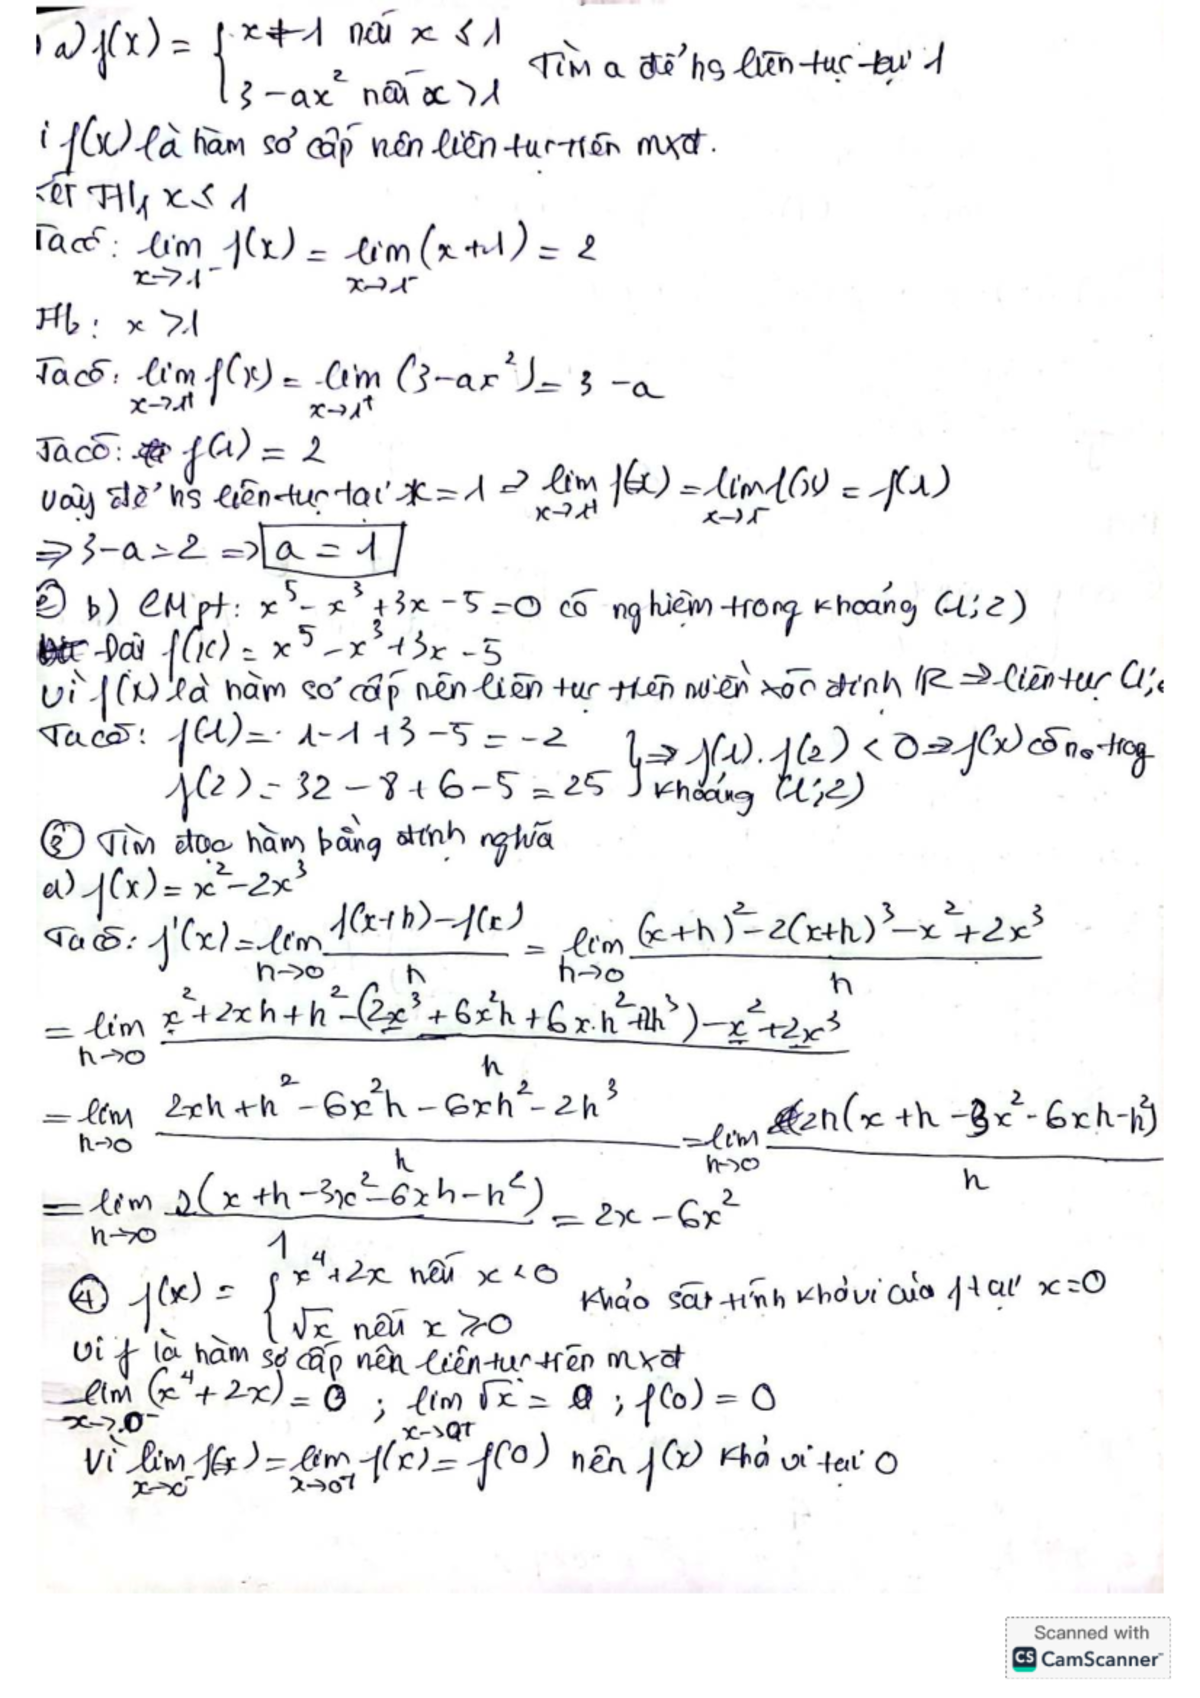 a) f(x) = { x+1 nếu x ≤ 1
3-ax² nếu x > 1 Tìm a để hs liên tục tại 1
f(x) là hàm sơ cấp nên liên tục trên mxđ.
x ≤ 1
Ta có: lim x→1⁻ f(x) = lim x→1⁻ (x+1) = 2
Th₂: x > 1
Ta có: lim x→1⁺ f(x) = lim x→1⁺ (3-ax²) = 3-a
Ta có: f(1) = 2
vậy để hs liên tục tại x = 1 ⇒ lim x→1⁺ f(x) = lim x→1⁻ f(x) = f(1)
⇒ 3-a = 2 ⇒ a = 1
② b) CM pt: x⁵ - x³ + 3x - 5 = 0 có nghiệm trong khoảng (1;2)
Đặt f(x) = x⁵ - x³ + 3x - 5
Vì f(x) là hàm sơ cấp nên liên tục trên miền xác định R ⇒ liên tục (1;
Ta có: f(1) = 1-1+3-5 = -2 } ⇒ f(1).f(2) < 0 ⇒ f(x) có no trog
f(2) = 32-8+6-5 = 25 khoảng (1;2)
③ Tìm đạo hàm bằng định nghĩa
a) f(x) = x² - 2x³
Ta có: f'(x) = lim h→0 (f(x+h) - f(x))/h = lim h→0 ((x+h)² - 2(x+h)³ - x² + 2x³)/h
= lim h→0 (x² + 2xh + h² - (2x³ + 6x²h + 6x.h² + 2h³) - x² + 2x³)/h
= lim h→0 (2xh + h² - 6x²h - 6xh² - 2h³)/h = lim h→0 2h(x + h - 3x² - 6xh - h²)/h
= lim h→0 2(x + h - 3x² - 6xh - h²)/1 = 2x - 6x²
④ f(x) = { x⁴ + 2x nếu x < 0 Khảo sát tính khả vi của f tại x = 0
√x nếu x ≥ 0
Vì f là hàm sơ cấp nên liên tục trên mxđ
lim x→0⁻ (x⁴ + 2x) = 0 ; lim x→0⁺ √x = 0 ; f(0) = 0
Vì lim x→0⁻ f(x) = lim x→0⁺ f(x) = f(0) nên f(x) khả vi tại 0
Scanned with
CS CamScanner